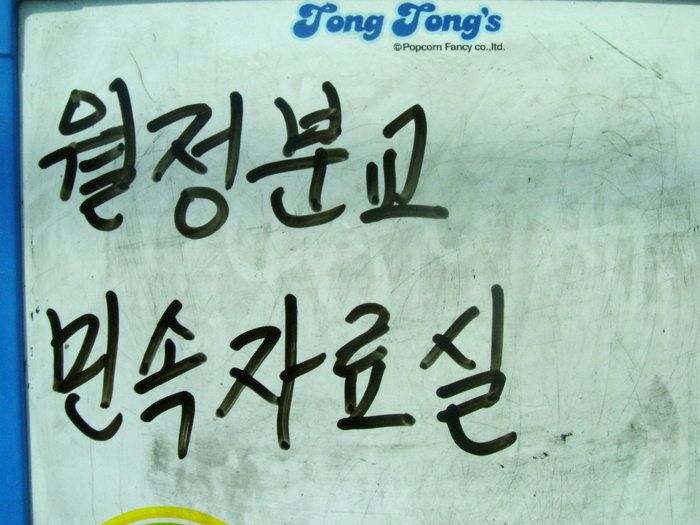 Tong Tong's
©Popcorn Fancy co.,ltd.
월정분교
민속자료실